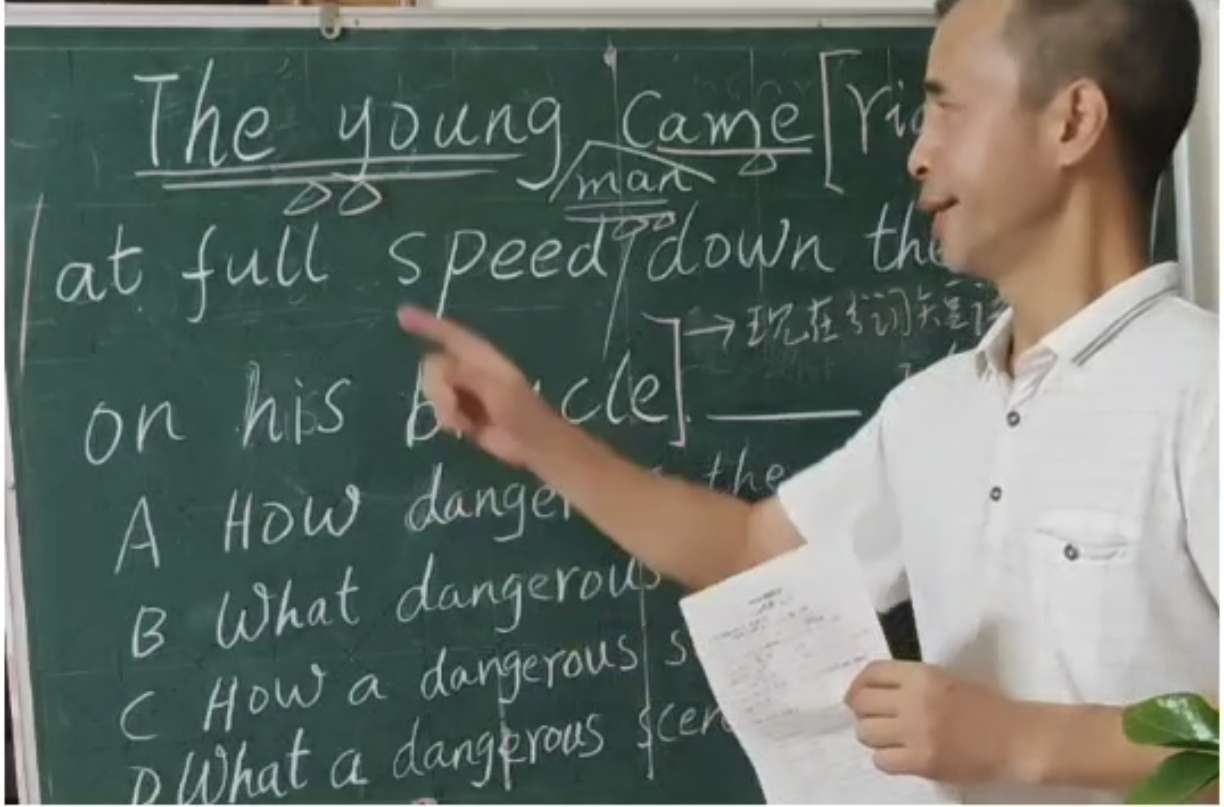 The young came [ri
man
at full speed down the
→ 现在分词
on his b cle].
A How danger the
B What dangerous
C How a dangerous s
D What a dangerous scen